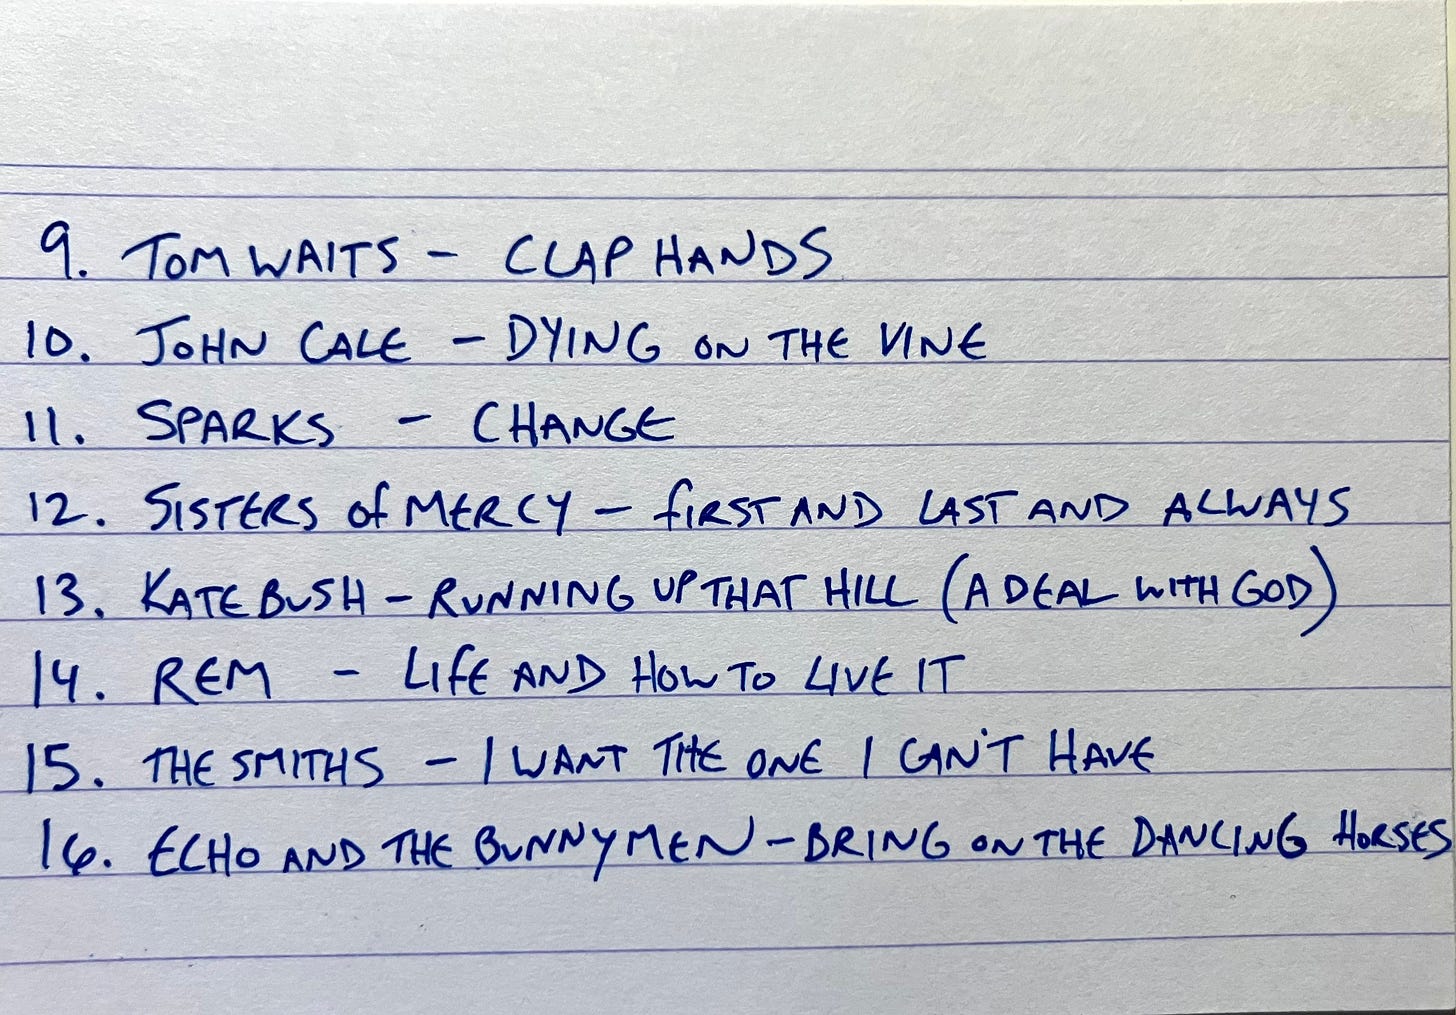 9. TOM WAITS - CLAP HANDS
10. JOHN CALE - DYING ON THE VINE
11. SPARKS - CHANGE
12. SISTERS of MERCY - fIRST AND LAST AND ALWAYS
13. KATE BUSH - RUNNING UP THAT HILL (A DEAL WITH GOD)
14. REM - LIfE AND HOW TO LIVE IT
15. THE SMITHS - I WANT THE ONE I CAN'T HAVE
16. ECHO AND THE BUNNYMEN - BRING ON THE DANCING HORSES